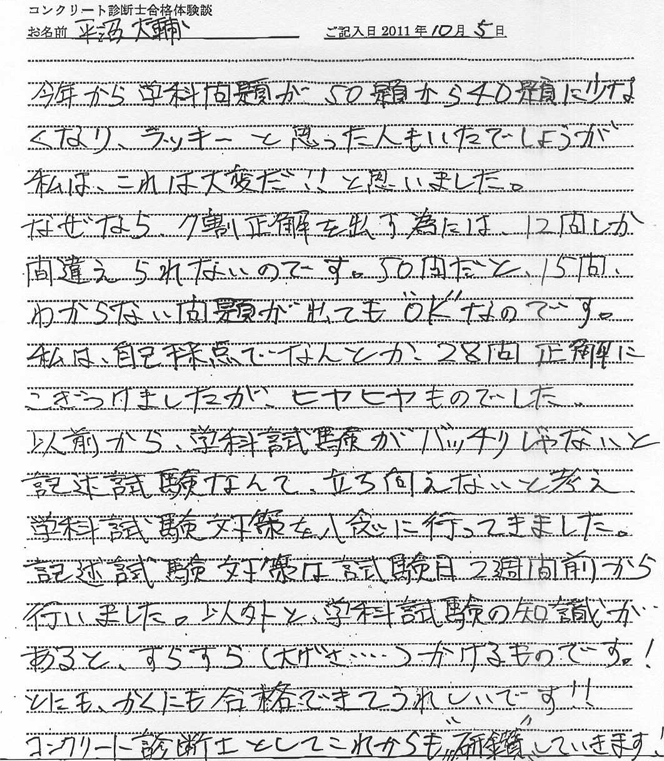 コンクリート診断士合格体験談
お名前 平沼大輔 ご記入日 2011年10月5日
今年から学科問題が50題から40題に少な
くなり、ラッキーと思った人もいたでしょうが
私は、これは大変だ!!と思いました。
なぜなら、7割正解を出す為には、12問しか
間違えられないのです。50問だと、15問、
わからない問題が出ても"OK"なのです。
私は、自己採点でなんとか、28問正解に
こぎつけましたが、ヒヤヒヤものでした。
以前から、学科試験がバッチリじゃないと
記述試験なんて、立ち向えないと考え
学科試験対策を入念に行ってきました。
記述試験対策は試験日2週間前から
行いました。以外と、学科試験の知識が
あると、すらすら(大げさ……)かけるものです。!
とにも、かくにも合格できてうれしいです!!
コンクリート診断士としてこれからも"研鑽"していきます!